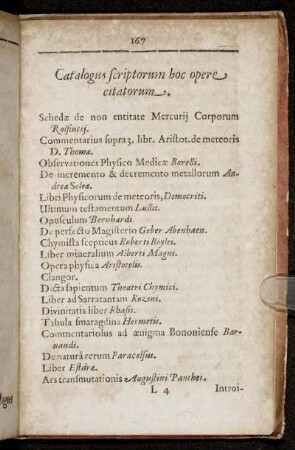 167
Catalogus scriptorum hoc opere
citatorum.
Schedæ de non entitate Mercurij Corporum
Rolfincij.
Commentarius supra 3. libr. Aristot. de meteoris
D. Thomæ.
Observationes Physico Medicæ Borelli.
De incremento & decremento metallorum An-
dreæ Soleæ.
Libri Physicorum de meteoris, Democriti.
Ultimum testamentum Lullii.
Opusculum Bernhardi.
De perfecto Magisterio Geber Abenhaen.
Chymista scepticus Roberti Boyles.
Liber mineralium Alberti Magni.
Opera physica Aristotelis.
Clangor.
Dicta sapientum Theatri Chymici.
Liber ad Sarratantam Rozini.
Divinitatis liber Rhasis.
Tabula smaragdina Hermetis.
Commentariolus ad ænigma Bononiense Bar-
naudi.
De natura rerum Paracelsus.
Liber Esdræ.
Ars transmutationis Augustini Panthei.
L 4
Introi-